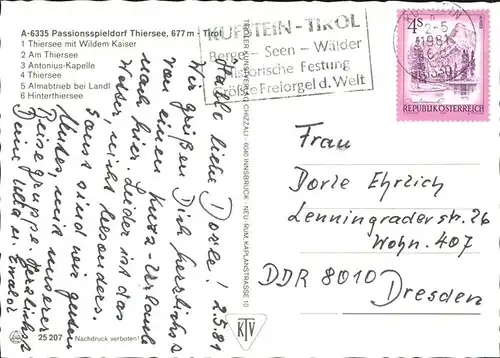 A-6335 Passionsspieldorf Thiersee, 677 m - Tirol
1 Thiersee mit Wildem Kaiser
2 Am Thiersee
3 Antonius-Kapelle
4 Thiersee
5 Almabtrieb bei Landl
6 Hinterthiersee
KUFSTEIN - TIROL
Berge - Seen - Wälder
Historische Festung
Größte Freiorgel d. Welt
2-5
1981
4 S
REPUBLIK ÖSTERREICH
2.5.81
liebe Dorle!
Wir grüßen Dich herzlichst
von einem Kurz-Urlaub
noch hier. Leider ist das
Wetter nicht besonders.
Sonst sind wir guten
Mutes, mit unserer
Reisegruppe. Herzlichst
Deine
TIROLER KUNSTVERLAG CHIZZALI - 6040 INNSBRUCK - NEU-RUM, KAPLANSTRASSE 10
KTV
Frau
Dorle Ehrlich
Lenningraderstr. 26
Wohn. 407
DDR 8010 Dresden
25 207 Nachdruck verboten!